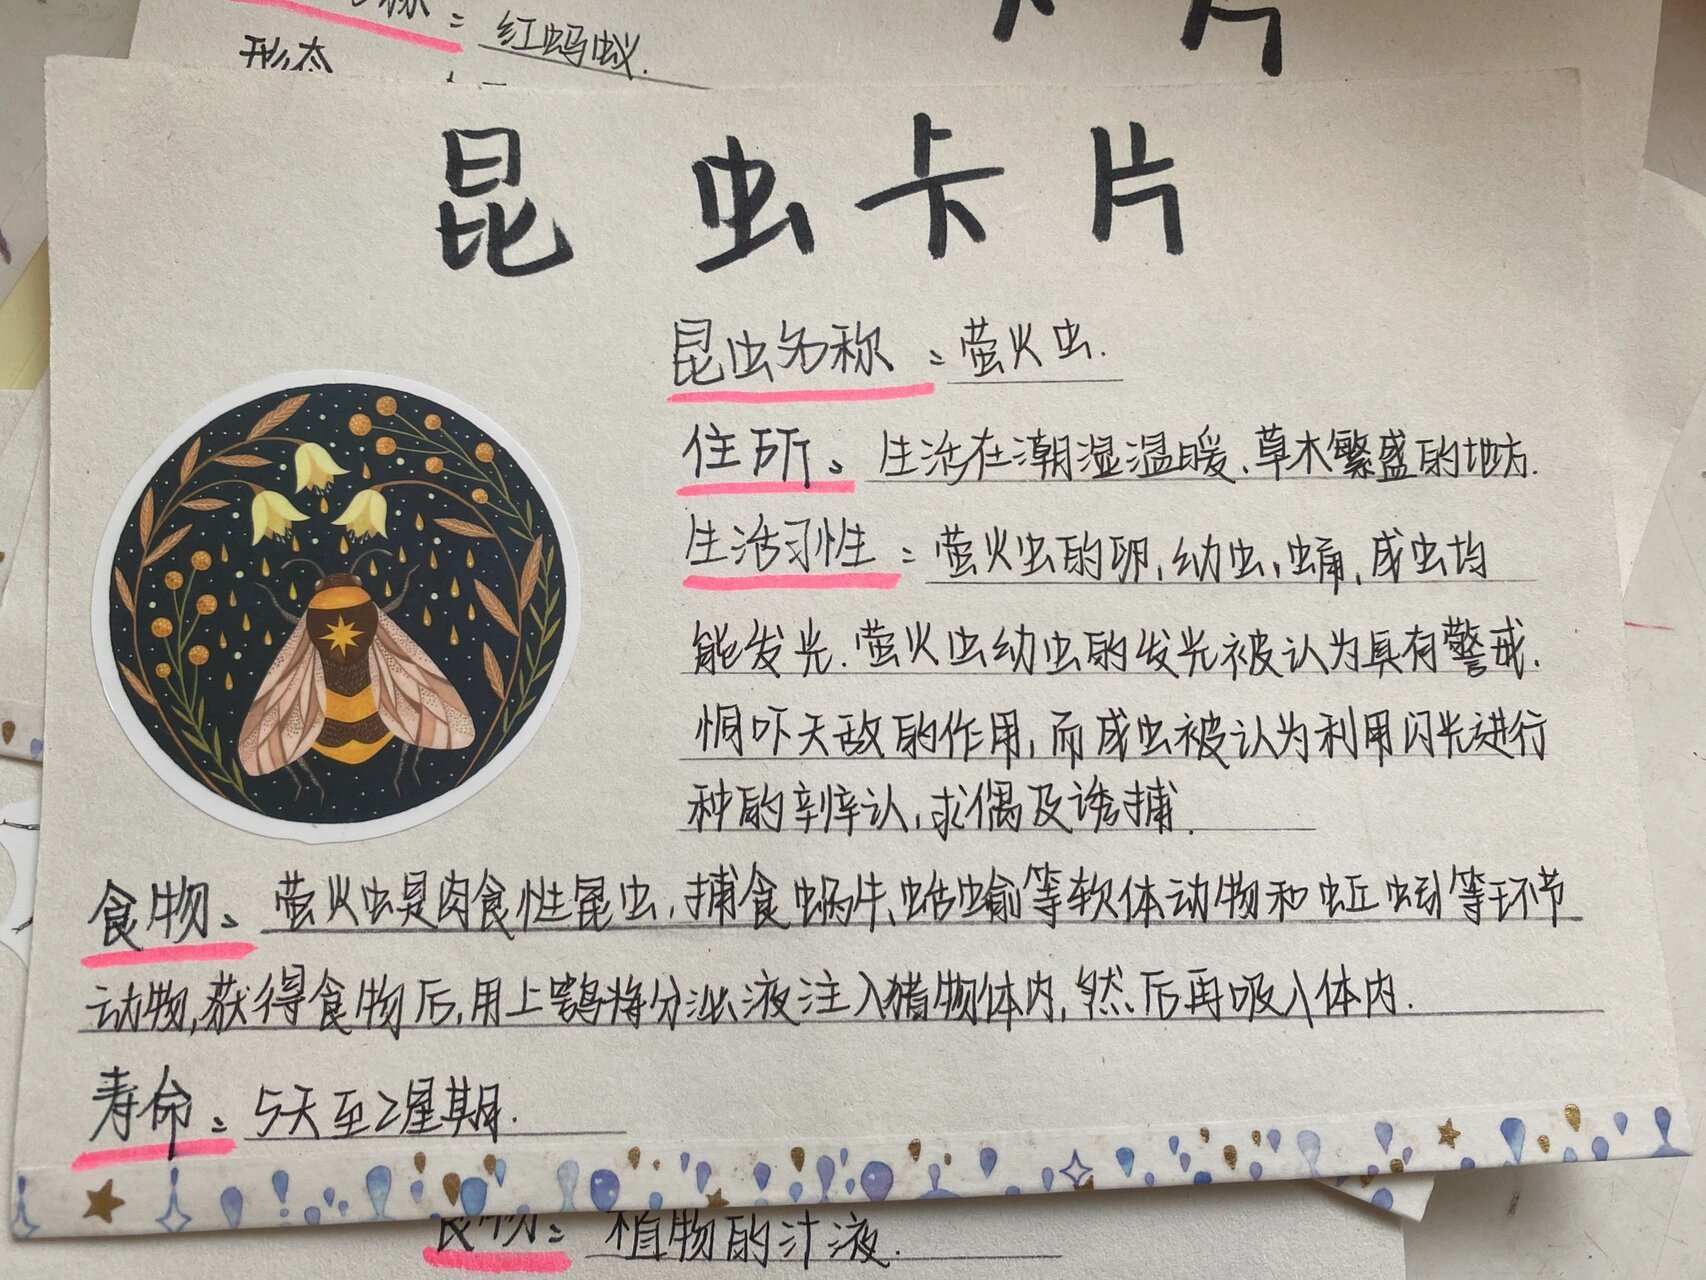 红蚂蚁.
形态
昆虫卡片
昆虫名称：萤火虫.
住所：生活在潮湿温暖、草木繁盛的地方.
生活习性：萤火虫的卵,幼虫,蛹,成虫均
能发光.萤火虫幼虫的发光被认为具有警戒.
恫吓天敌的作用,而成虫被认为利用闪光进行
种的辨认,求偶及诱捕.
食物：萤火虫是肉食性昆虫,捕食蜗牛、蛞蝓等软体动物和蚯蚓等环节
动物,获得食物后,用上颚将分泌液注入猎物体内,然后再吸入体内.
寿命：5天至2星期.
食物：植物的汁液.